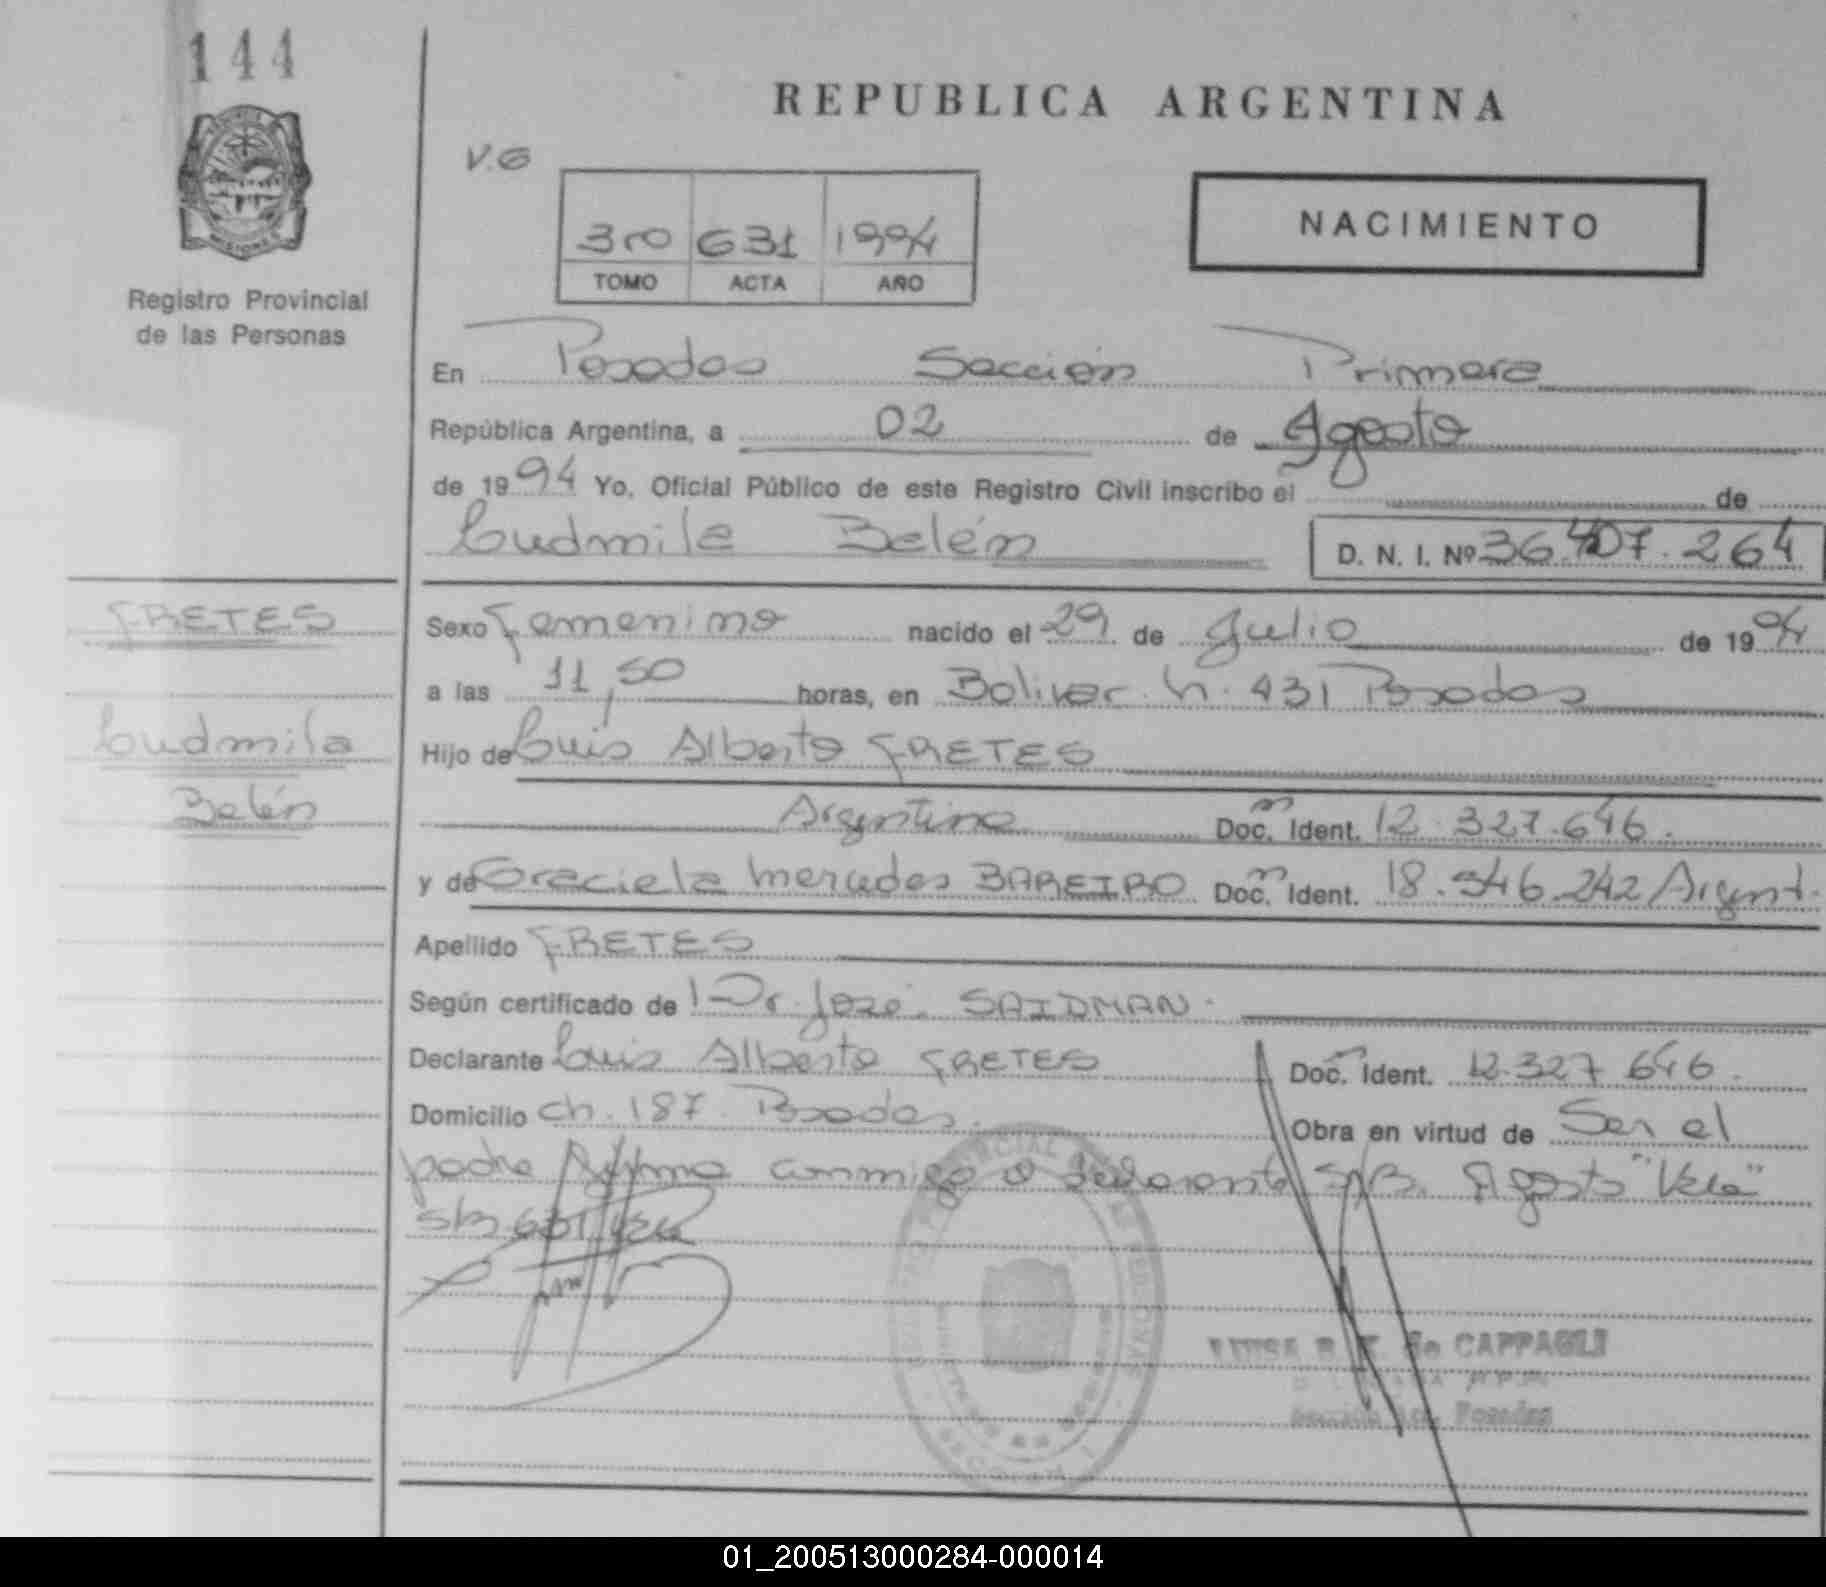 144
REPUBLICA ARGENTINA
V.G
NACIMIENTO
3ro 631 1994
TOMO ACTA AÑO
MISIONES
Registro Provincial
de las Personas
En Posadas Sección Primera
República Argentina, a 02 de Agosto
de 1994 Yo, Oficial Público de este Registro Civil inscribo el de
Ludmila Belén D. N. I. Nº 36.407.264
FRETES
Sexo Femenino nacido el 29 de Julio de 1994
a las 11,50 horas, en Bolivar n. 431 Posadas
Ludmila
Hijo de Luis Alberto FRETES
Belén
Argentino Doc. Ident. 12.327.646.
y de Graciela Mercedes BAREIRO Doc. Ident. 18.546.242 Argent.
Apellido FRETES
Según certificado de Dr. José SAIDMAN.
Declarante Luis Alberto FRETES Doc. Ident. 12.327.646.
Domicilio ch. 187. Posadas. Obra en virtud de Ser el
padre conmigo el declarante S/B. Agosto "Vale"
S/B 631
LUISA de CAPPAGLI
Sección 1ra. Posadas
01_200513000284-000014